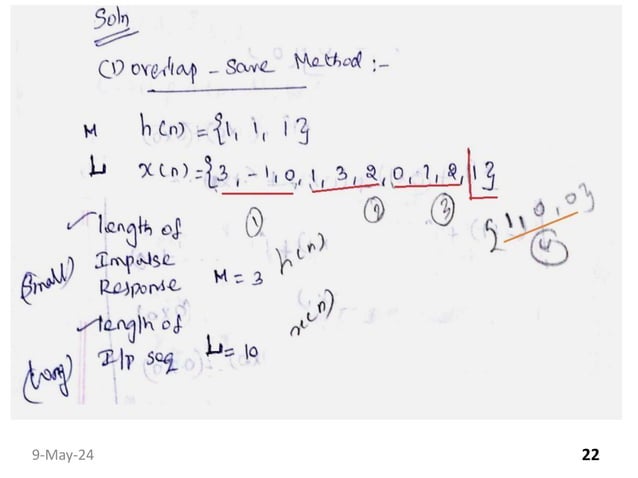 Soln
(1) overlap - Save Method :-
M h(n) = {1, 1, 1}
L x(n) = {3, -1, 0, 1, 3, 2, 0, 1, 2, 1}
① ② ③ {1, 0, 0}
④
length of
(Small) Impulse
Response M = 3 h(n)
length of
(Long) I/P seq L = 10 x(n)
9-May-24
22